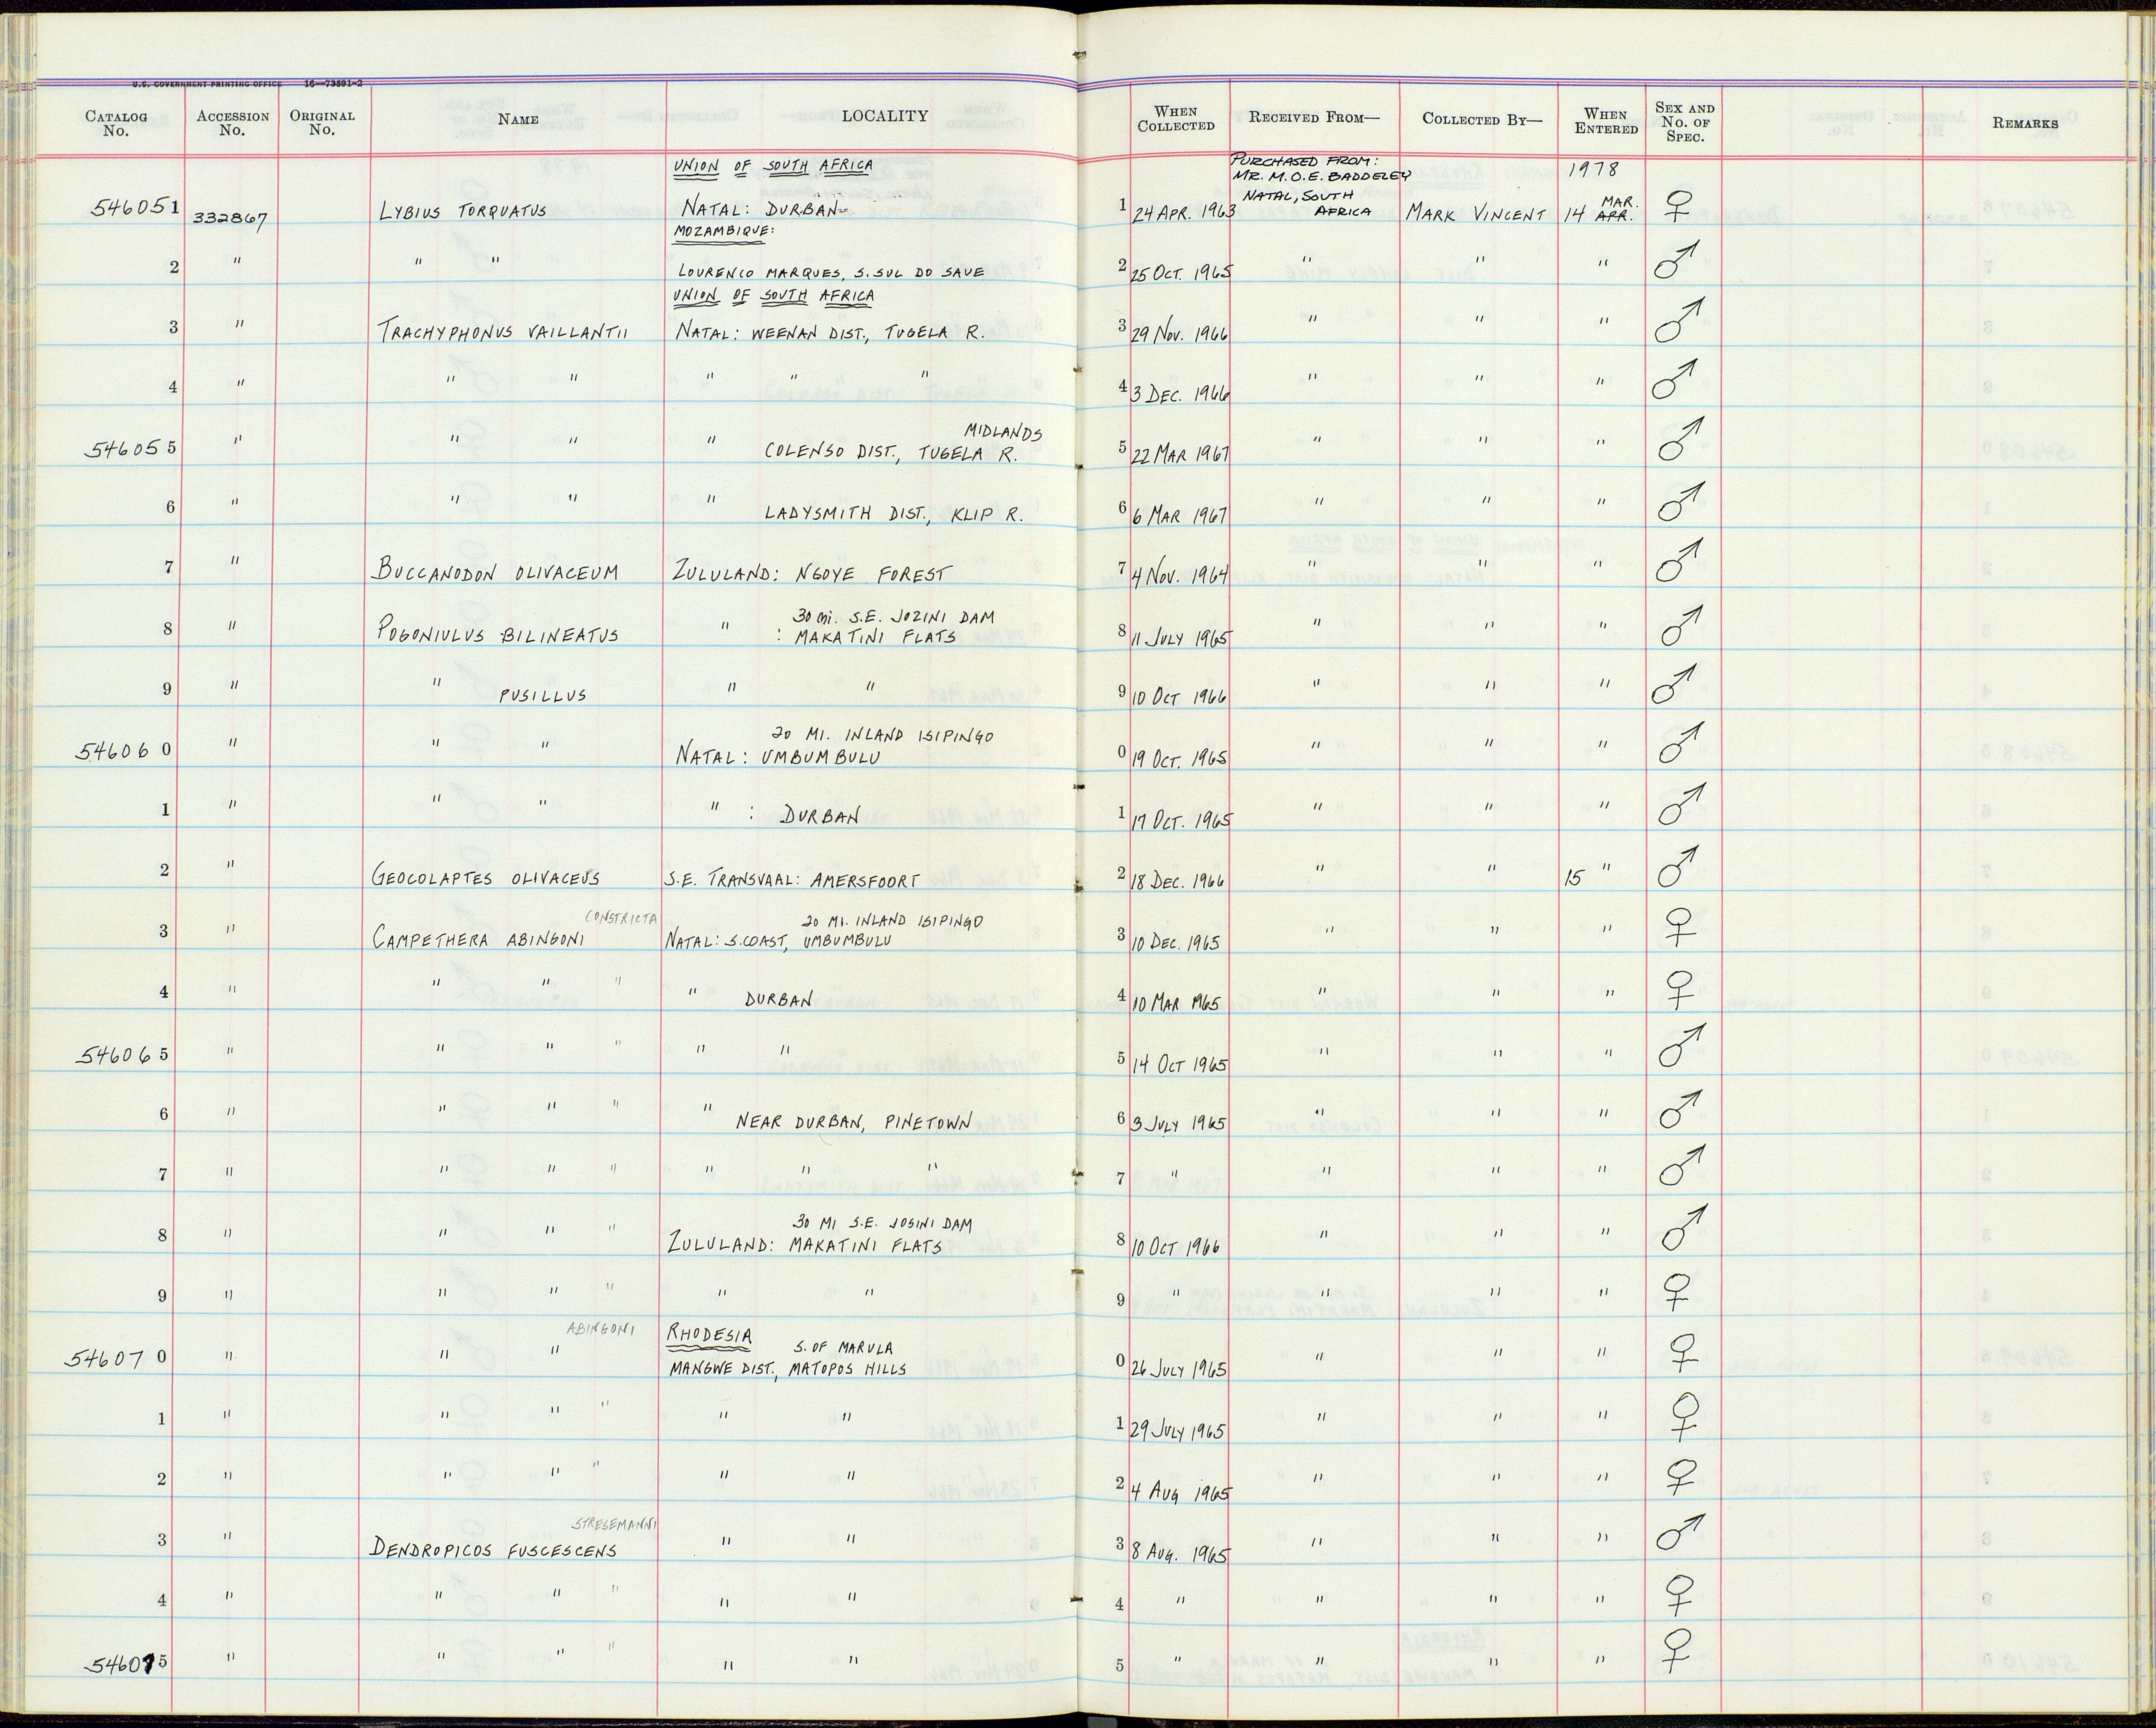 U.S. GOVERNMENT PRINTING OFFICE 16—73591-2
CATALOG No. ACCESSION No. ORIGINAL No. NAME LOCALITY WHEN COLLECTED RECEIVED FROM— COLLECTED BY— WHEN ENTERED SEX AND No. OF SPEC. REMARKS
UNION OF SOUTH AFRICA PURCHASED FROM: MR. M.O.E. BADDELEY 1978
546051 332867 LYBIUS TORQUATUS NATAL: DURBAN 1 24 APR. 1963 NATAL, SOUTH AFRICA MARK VINCENT 14 MAR. APR. ♀
MOZAMBIQUE:
2 " " " LOURENCO MARQUES, S. SUL DO SAVE 2 25 OCT. 1965 " " " ♂
UNION OF SOUTH AFRICA
3 " TRACHYPHONUS VAILLANTII NATAL: WEENAN DIST., TUGELA R. 3 29 NOV. 1966 " " " ♂
4 " " " " " " 4 3 DEC. 1966 " " " ♂
MIDLANDS
546055 " " " " COLENSO DIST., TUGELA R. 5 22 MAR 1967 " " " ♂
6 " " " " LADYSMITH DIST., KLIP R. 6 6 MAR 1967 " " " ♂
7 " BUCCANODON OLIVACEUM ZULULAND: NGOYE FOREST 7 4 NOV. 1964 " " " ♂
30 mi. S.E. JOZINI DAM
8 " POGONIULUS BILINEATUS " : MAKATINI FLATS 8 11 JULY 1965 " " " ♂
9 " " PUSILLUS " " 9 10 OCT 1966 " " " ♂
20 MI. INLAND ISIPINGO
546060 " " " NATAL: UMBUMBULU 0 19 OCT. 1965 " " " ♂
1 " " " " : DURBAN 1 17 OCT. 1965 " " " ♂
2 " GEOCOLAPTES OLIVACEUS S.E. TRANSVAAL: AMERSFOORT 2 18 DEC. 1966 " " 15 " ♂
CONSTRICTA 20 MI. INLAND ISIPINGO
3 " CAMPETHERA ABINGONI NATAL: S. COAST, UMBUMBULU 3 10 DEC. 1965 " " " ♀
4 " " " " " DURBAN 4 10 MAR 1965 " " " ♀
546065 " " " " " " 5 14 OCT 1965 " " " ♂
6 " " " " " NEAR DURBAN, PINETOWN 6 3 JULY 1965 " " " ♂
7 " " " " " " " 7 " " " " ♂
30 MI S.E. JOSINI DAM
8 " " " " ZULULAND: MAKATINI FLATS 8 10 OCT 1966 " " " ♂
9 " " " " " " 9 " " " " ♀
ABINGONI RHODESIA S. OF MARULA
546070 " " " MANGWE DIST., MATOPOS HILLS 0 26 JULY 1965 " " " ♀
1 " " " " " " 1 29 JULY 1965 " " " ♀
2 " " " " " " 2 4 AUG 1965 " " " ♀
STRESEMANNI
3 " DENDROPICOS FUSCESCENS " " 3 8 AUG. 1965 " " " ♂
4 " " " " " " 4 " " " " ♀
546075 " " " " " " 5 " " " " ♀